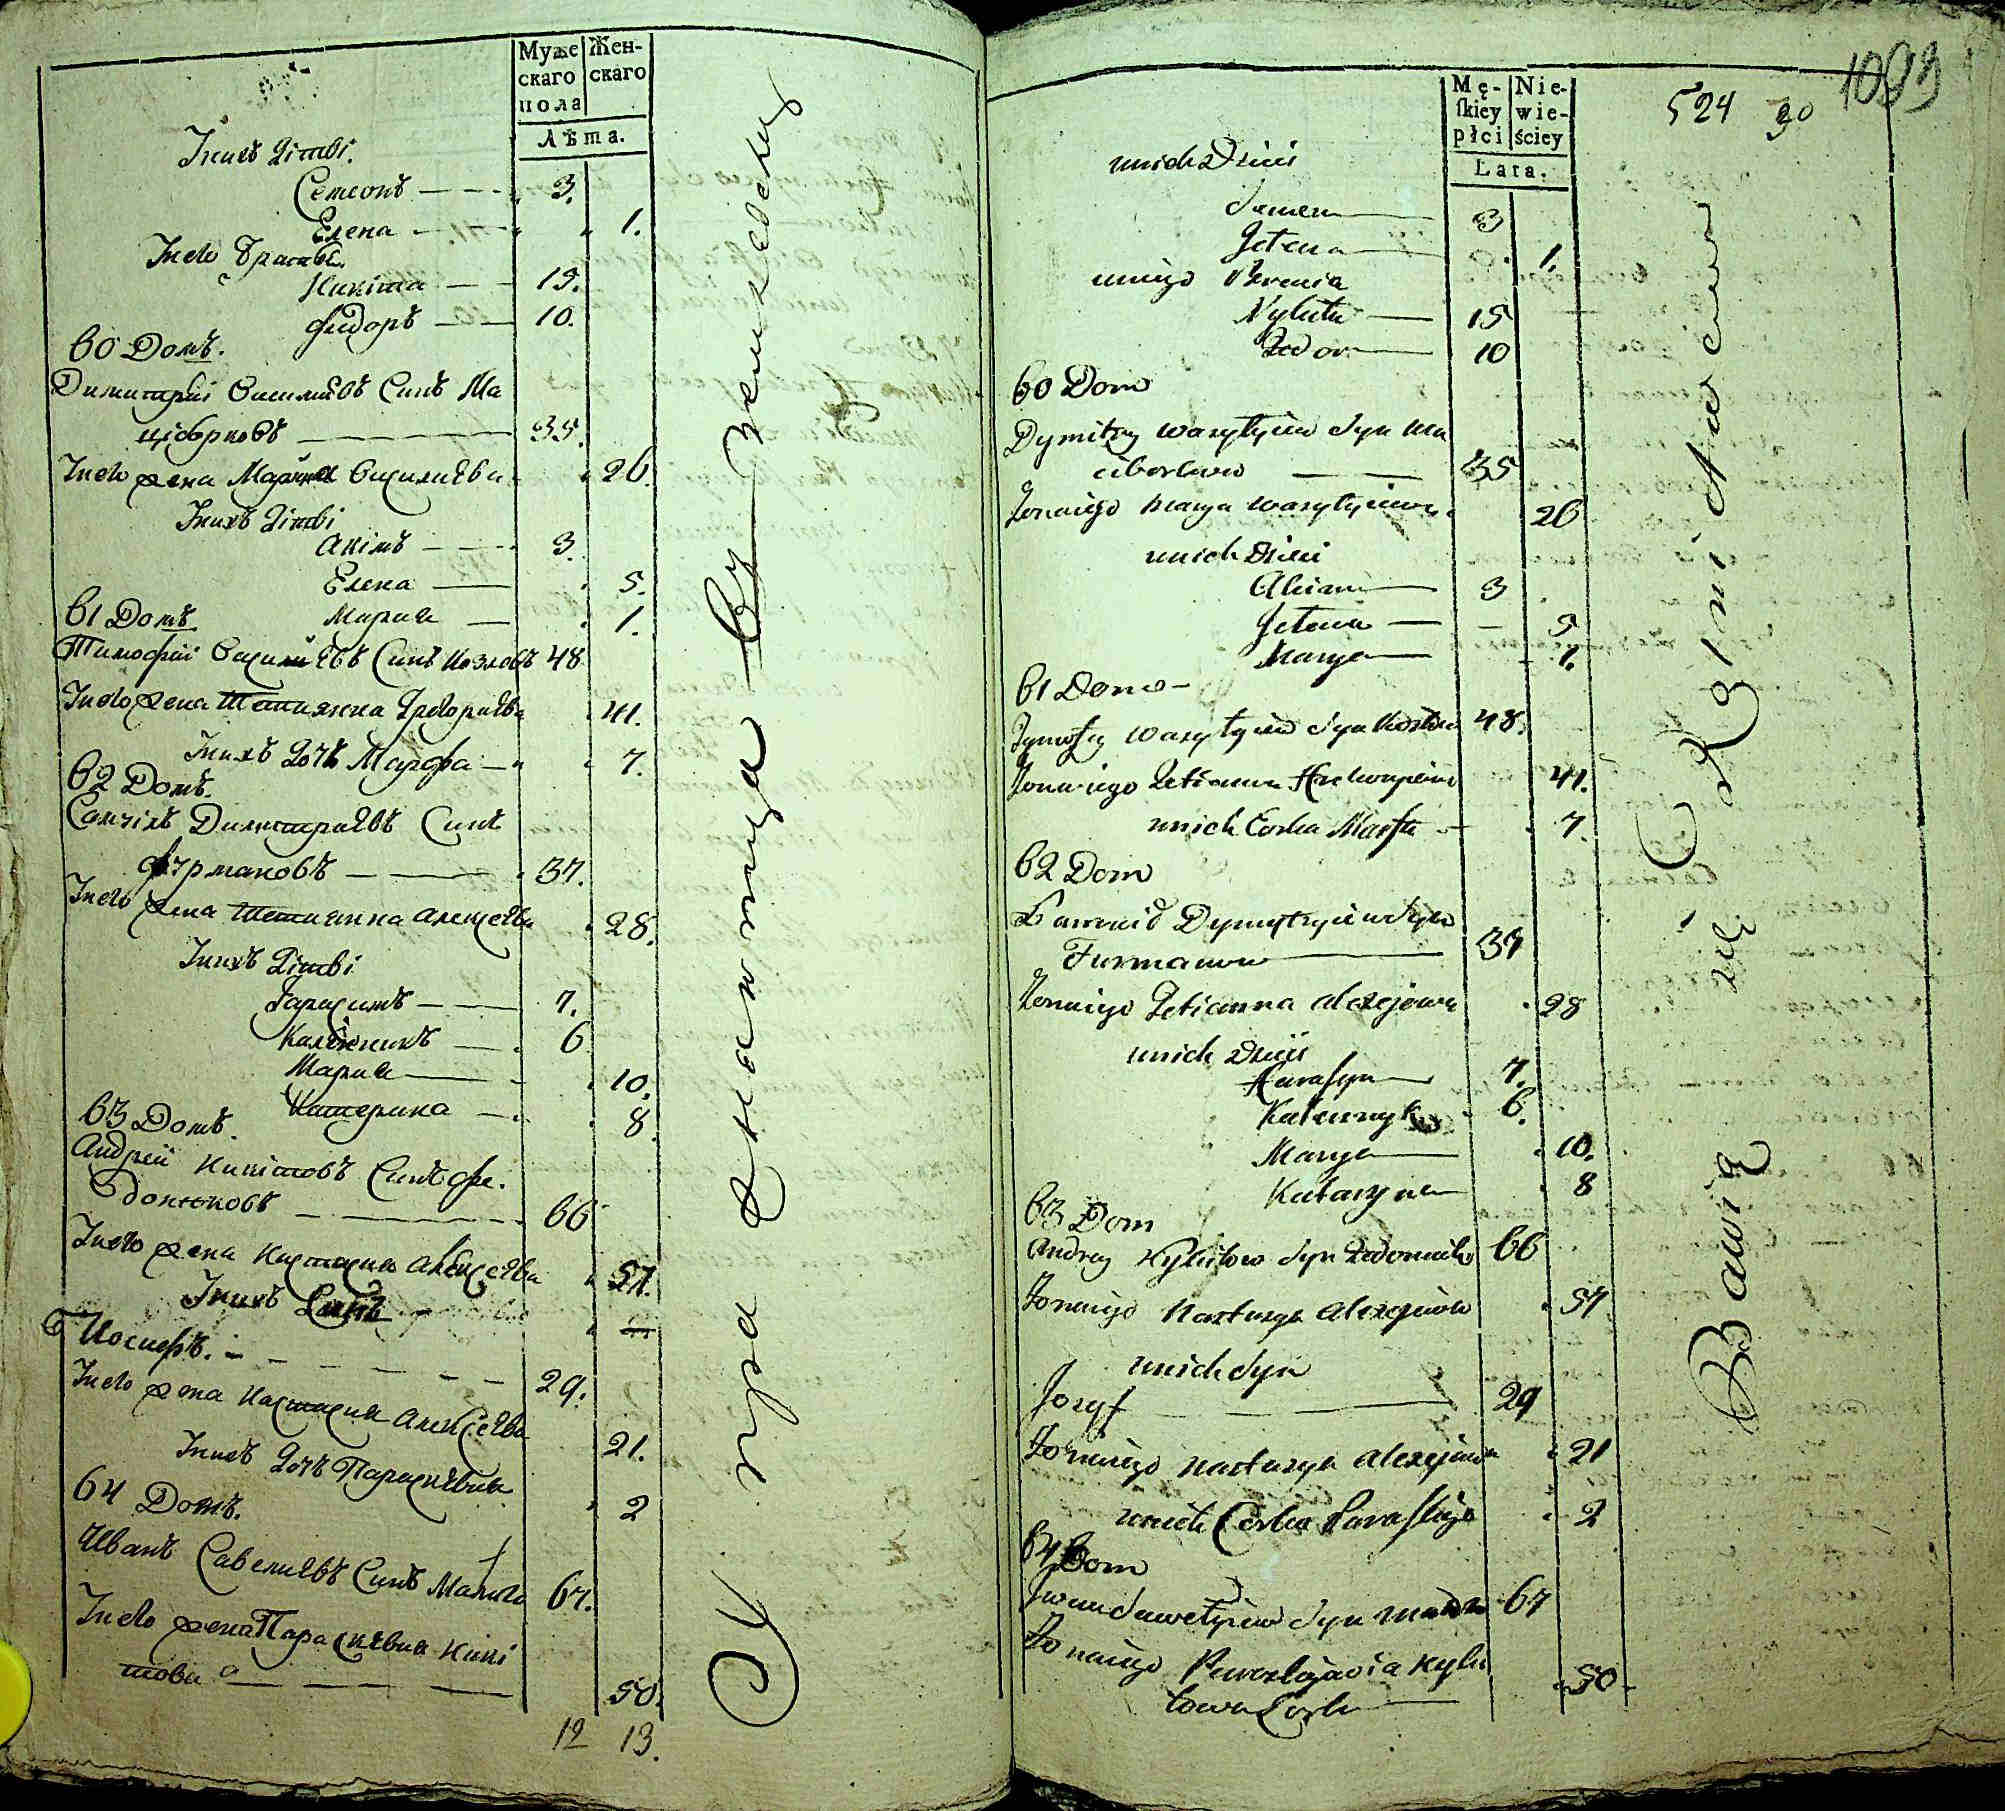 Муже
скаго
пола
Жен-
скаго
Лѣта.
Унихъ Дѣти.
Семеонъ 3.
Елена 1.
Унего Братьѣ
Никита 15.
Фидоръ 10.
60 Домъ.
Димитрій Василиевъ Синъ Ма
цісорковъ 35.
Унего жена Василиева 26.
Унихъ Дѣти
Акімъ 3.
Елена 5.
Мария 1.
61 Домъ
Тимофій Василиевъ Синъ Козловъ 48
Унего жена Тетиянна Григориева 41.
Унихъ Дочь Марфа 7.
62 Домъ.
Димитриевъ Синъ
Фурмановъ 37.
Унего жена Тетиянна Алексѣева 28.
Унихъ Дѣти
Гарасимъ 7.
Каленикъ 6
Мария 10.
Катерина 8.
63 Домъ.
Андрей Никитовъ Синъ Фе-
донюковъ 66
Унего жена Настасия Алексѣева 57.
Унихъ Синъ
Иосифъ. 29.
Унего жена Настасия Алексѣева 21.
Унихъ Дочь Параскевия 2
64 Домъ.
Иванъ Савелиевъ Синъ 67.
Унего жена Параскевия Ники
това 50.
12 13.
К пра
Mę-
ſkiey
płci
Nie-
wie-
ściey
Lata.
524
30
1093
unich Dzieci
Semen 3
Jelena 1.
uniego Bracia
Nykita 15
Fedor 10
60 Dom
Dymitry Wasylyiew Syn Ma
ciborkow 35
Żona iego Marya Wasylyiewa 26
unich Dzieci
Akim 3
Jelena 5
Marya 1.
61 Dom
Tymofiy Wasylyiew Syn Kozłow 48.
Żona iego Tetianna 41.
unich Corka Marfa 7.
62 Dom
Dymytryiew Syn
Furmanow 37
Żona iego Tetianna Alexejowa 28
unich Dzieci
Harasym 7.
Kalennyk 6.
Marya 10.
Katarzyna 8
63 Dom
Andrey Nykitow Syn Fedoniuków 66
Żona iego Nastasya Alexejowa 57
unich Syn
Jozyf 29
Żona iego Nastasya Alexejowa 21
unich Corka Paraskija 2
64 Dom
Iwan Sawelyiew Syn 67
Żona iego Paraskijawia Nyki
towa Corka 50